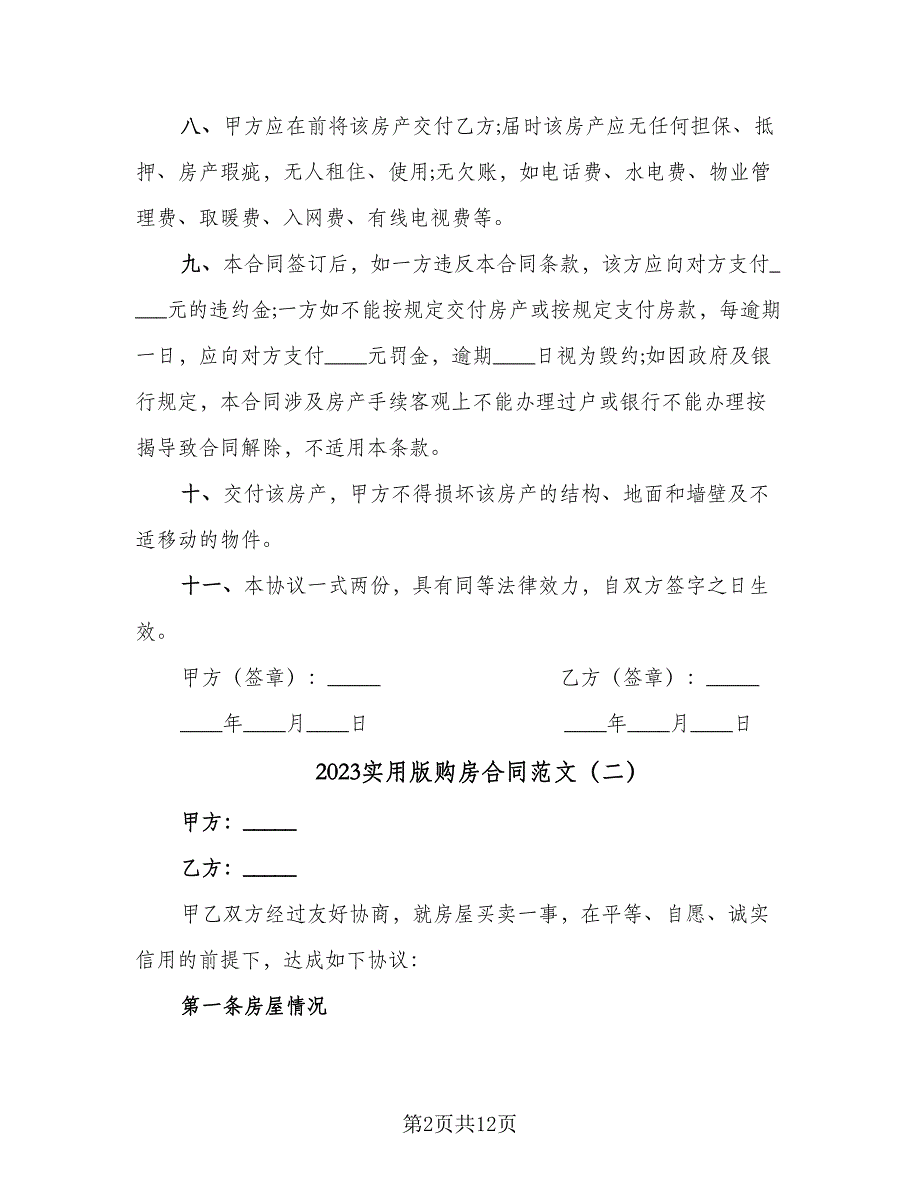 八、甲方应在前将该房产交付乙方;届时该房产应无任何担保、抵
押、房产瑕疵，无人租住、使用;无欠账，如电话费、水电费、物业管
理费、取暖费、入网费、有线电视费等。
九、本合同签订后，如一方违反本合同条款，该方应向对方支付_
___元的违约金;一方如不能按规定交付房产或按规定支付房款，每逾期
一日，应向对方支付____元罚金，逾期____日视为毁约;如因政府及银
行规定，本合同涉及房产手续客观上不能办理过户或银行不能办理按
揭导致合同解除，不适用本条款。
十、交付该房产，甲方不得损坏该房产的结构、地面和墙壁及不
适移动的物件。
十一、本协议一式两份，具有同等法律效力，自双方签字之日生
效。
甲方（签章）：_____ 乙方（签章）：_____
____年____月____日 ____年____月____日
2023实用版购房合同范文（二）
甲方：_____
乙方：_____
甲乙双方经过友好协商，就房屋买卖一事，在平等、自愿、诚实
信用的前提下，达成如下协议：
第一条房屋情况
第2页共12页